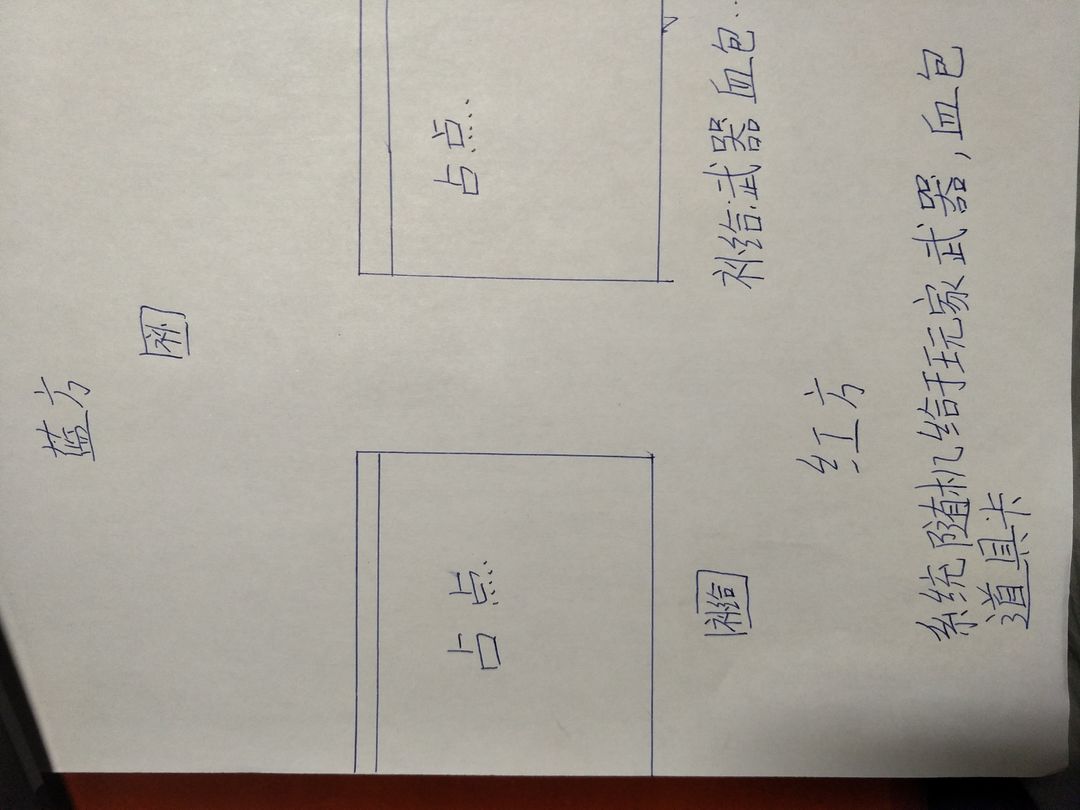 蓝方
补
占点..
占点...
补给
补给:武器 血包...
红方
系统随机给于玩家武器,血包
道具卡